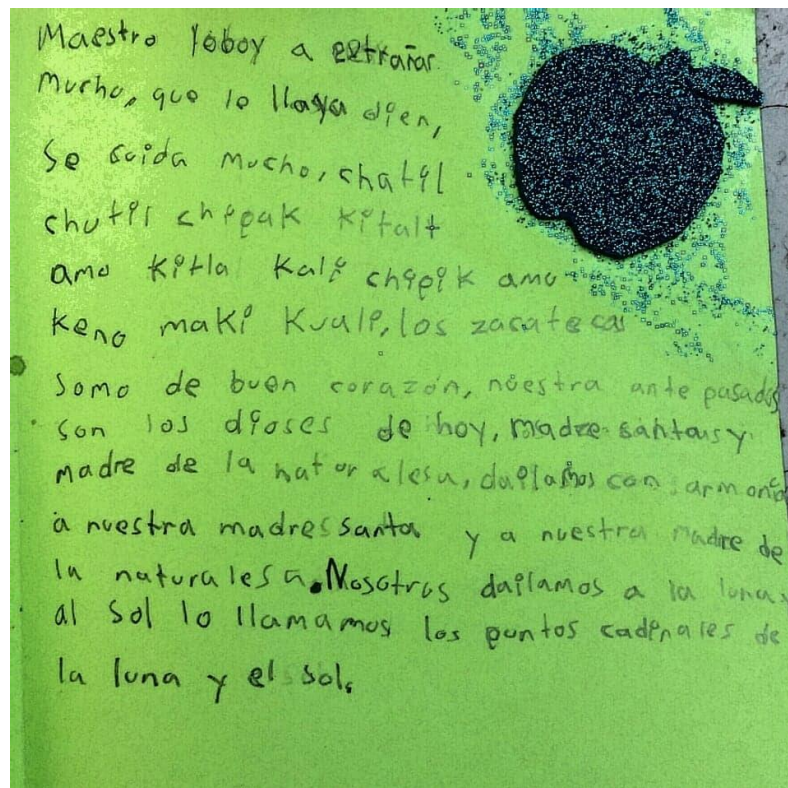 Maestro loboy a extrañar
mucho, que lo llaya dien,
se cuida mucho, chatil
chutil chipak kitalt
amo kitla kali chipik amo
keno maki kuali, los zacatecas
somo de buen corazón, nuestra ante pasados
son los dioses de hoy, madre santas y
madre de la naturalesa, dailamos con armonía
a nuestra madres santa y a nuestra madre de
la naturalesa. Nosotros dailamos a la luna,
al sol lo llamamos los puntos cadinales de
la luna y el sol.